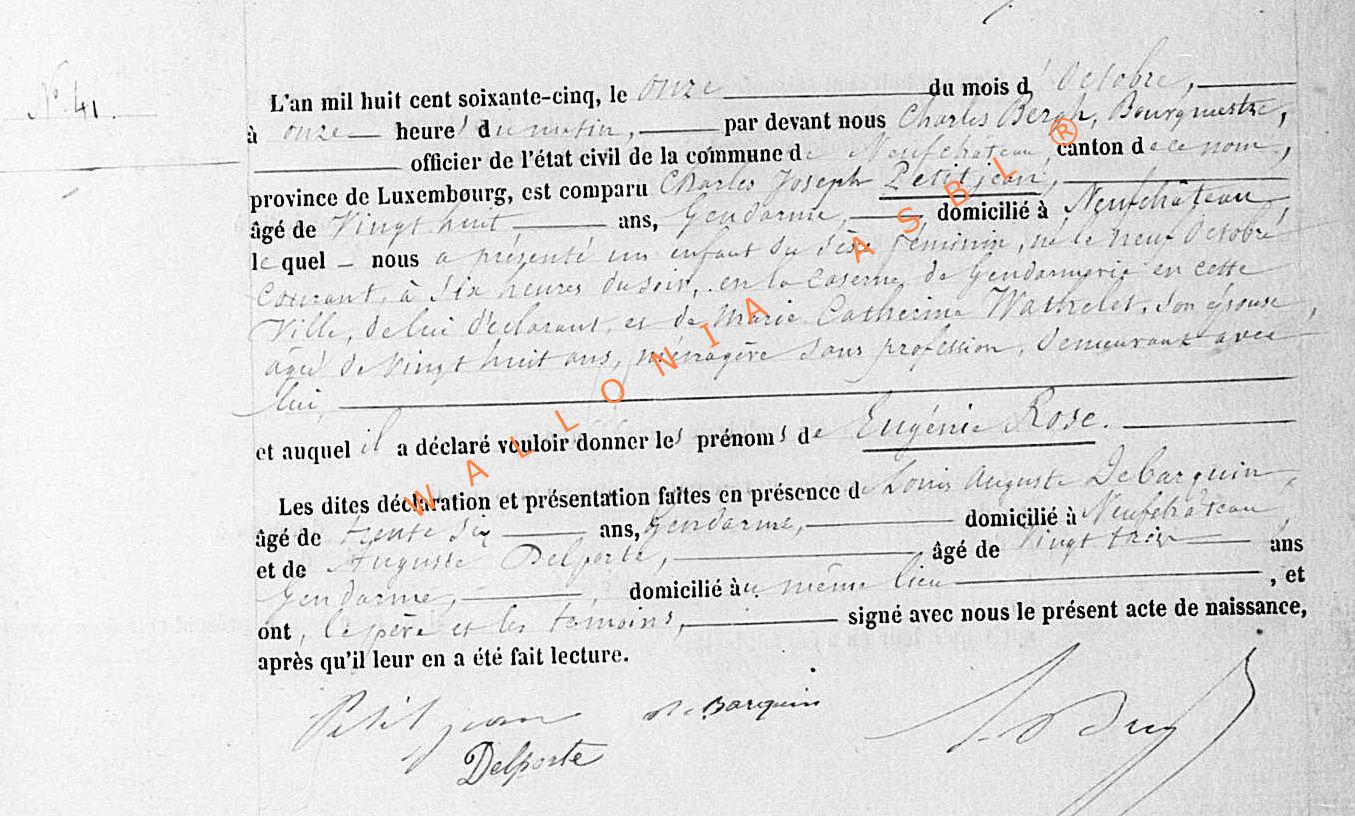 N° 41
L'an mil huit cent soixante-cinq, le onze du mois d'Octobre,
à onze heures du matin, par devant nous Charles Bergh, Bourgmestre,
officier de l'état civil de la commune de Neufchâteau, canton de ce nom,
province de Luxembourg, est comparu Charles Joseph Petitjean,
âgé de Vingt huit ans, Gendarme, domicilié à Neufchâteau
le quel nous a présenté un enfant du sèxe féminin, né le neuf Octobre
Courant, à Six heures du soir, en la Caserne de Gendarmerie en cette
Ville, de lui déclarant, et de Marie Catherine Wathelet, son épouse,
âgée de Vingt huit ans, ménagère sans profession, demeurant avec
lui,
et auquel il a déclaré vouloir donner les prénoms de Eugénie Rose.
Les dites déclaration et présentation faites en présence de Louis Auguste DeBarquin,
âgé de trente Six ans, Gendarme, domicilié à Neufchâteau,
et de Auguste Delporte, âgé de Vingt trois ans
Gendarme, domicilié au même lieu, et
ont, le père et les témoins, signé avec nous le présent acte de naissance,
après qu'il leur en a été fait lecture.
Petitjean DeBarquin
Delporte
WALLONIA ASBL ®